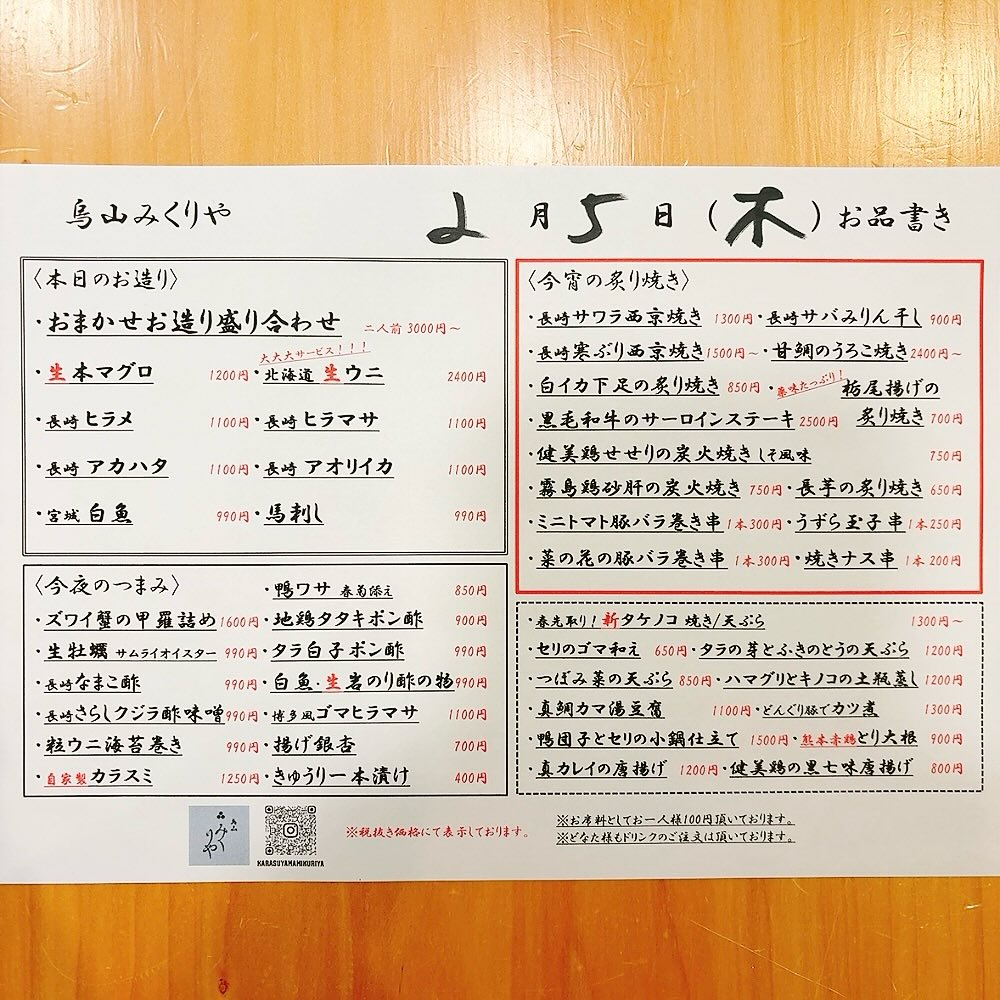 烏山みくりや 2月5日(木)お品書き
〈本日のお造り〉
・おまかせお造り盛り合わせ 二人前 3000円～
大大大サービス!!!
・生本マグロ 1200円・北海道 生ウニ 2400円
・長崎ヒラメ 1100円・長崎ヒラマサ 1100円
・長崎 アカハタ 1100円・長崎 アオリイカ 1100円
・宮城 白魚 990円・馬刺し 990円
〈今夜のつまみ〉 ・鴨ワサ 春菊添え 850円
・ズワイ蟹の甲羅詰め1600円・地鶏タタキポン酢 900円
・生牡蠣 サムライオイスター 990円・タラ白子ポン酢 990円
・長崎なまこ酢 990円・白魚・生岩のり酢の物990円
・長崎さらしクジラ酢味噌990円・博多風ゴマヒラマサ 1100円
・粒ウニ海苔巻き 990円・揚げ銀杏 700円
・自家製カラスミ 1250円・きゅうり一本漬け 400円
〈今宵の炙り焼き〉
・長崎サワラ西京焼き 1300円・長崎サバみりん干し 900円
・長崎寒ぶり西京焼き1500円～・甘鯛のうろこ焼き2400円～
・白イカ下足の炙り焼き 850円・薬味たっぷり!栃尾揚げの
・黒毛和牛のサーロインステーキ 2500円 炙り焼き 700円
・健美鶏せせりの炭火焼き しそ風味 750円
・霧島鶏砂肝の炭火焼き 750円・長芋の炙り焼き 650円
・ミニトマト豚バラ巻き串 1本300円・うずら玉子串 1本250円
・菜の花の豚バラ巻き串 1本300円・焼きナス串 1本200円
・春先取り!新タケノコ 焼き/天ぷら 1300円～
・セリのゴマ和え 650円・タラの芽とふきのとうの天ぷら 1200円
・つぼみ菜の天ぷら 850円・ハマグリとキノコの土瓶蒸し 1200円
・真鯛カマ湯豆腐 1100円・どんぐり豚でカツ煮 1300円
・鴨団子とセリの小鍋仕立て 1500円・熊本赤鶏とり大根 900円
・真カレイの唐揚げ 1200円・健美鶏の黒七味唐揚げ 800円
みくりや
KARASUYAMAMIKURIYA
※税抜き価格にて表示しております。
※お席料としてお一人様100円頂いております。
※どなた様もドリンクのご注文は頂いております。